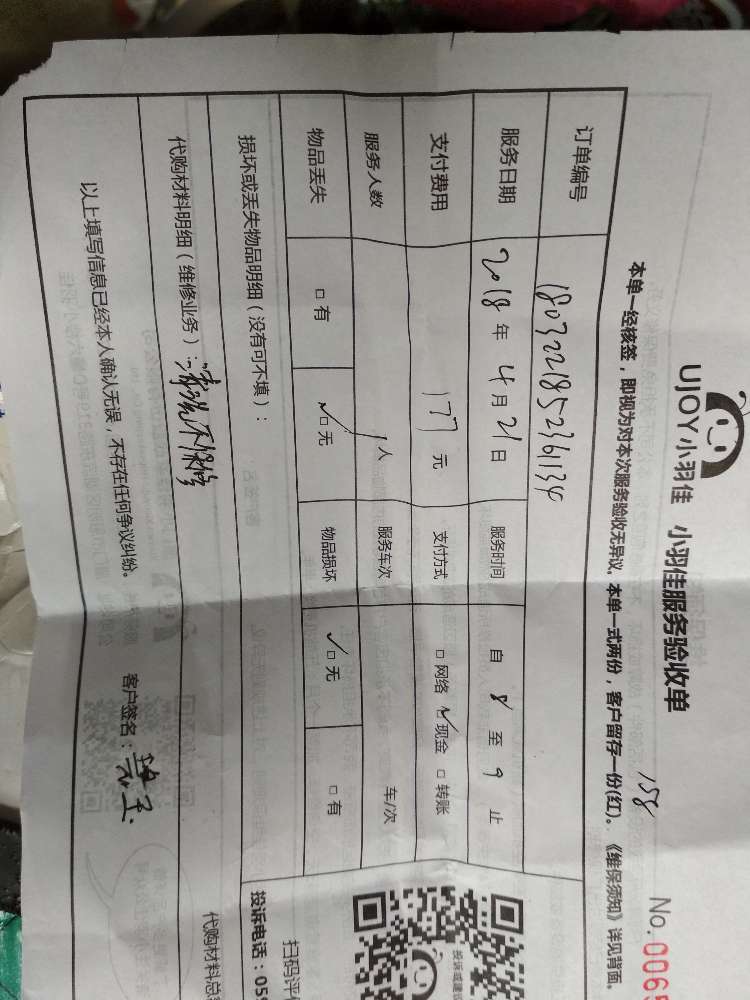 UJOY小羽佳 小羽佳服务验收单
158
No. 006
本单一经核签，即视为对本次服务验收无异议，本单一式两份，客户留存一份(红)。《维保须知》详见背面。
订单编号 1803221852361134
服务日期 2018年4月21日 服务时间 自8至9止
支付费用 177元 支付方式 □网络 ☑现金 □转账
服务人数 1人 服务车次 车/次
物品丢失 □有 ☑无 物品损坏 ☑无 □有
损坏或丢失物品明细（没有可不填）：
代购材料明细（维修业务）：清洗不保修
代购材料总
以上填写信息已经本人确认无误，不存在任何争议纠纷。
客户签名：
扫码评
投诉电话：059